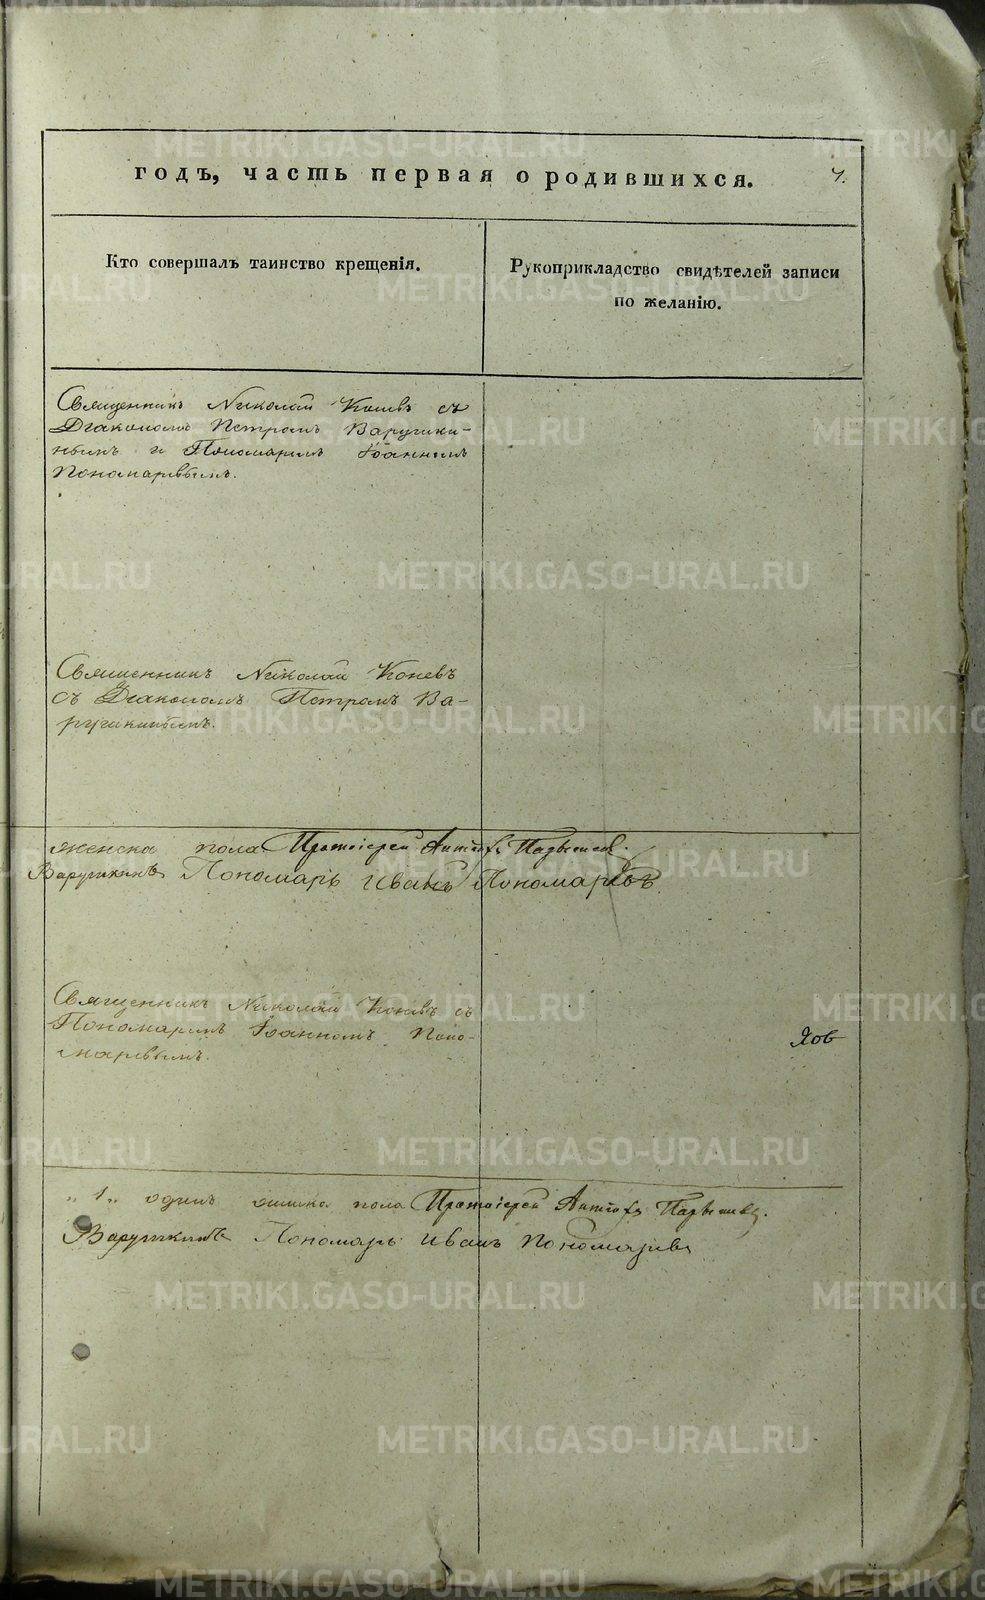 годъ, часть первая о родившихся.
Кто совершалъ таинство крещенія.
Рукоприкладство свидѣтелей записи
по желанію.
Священникъ Николай Коневъ съ
Діакономъ Петромъ Варушки-
нымъ и Пономаремъ Іоанномъ
Пономаревымъ.
Священникъ Николай Коневъ
съ Діакономъ Петромъ Ва-
рушкинымъ.
женска пола Протоіерей
Варушкинъ Пономарь Иванъ Пономаревъ
Священникъ Николай Коневъ съ
Пономаремъ Іоанномъ Поно-
маревымъ.
Яов
„1„ одинъ пола Протоіерей
Варушкинъ Пономарь Иванъ Пономаревъ
METRIKI.GASO-URAL.RU